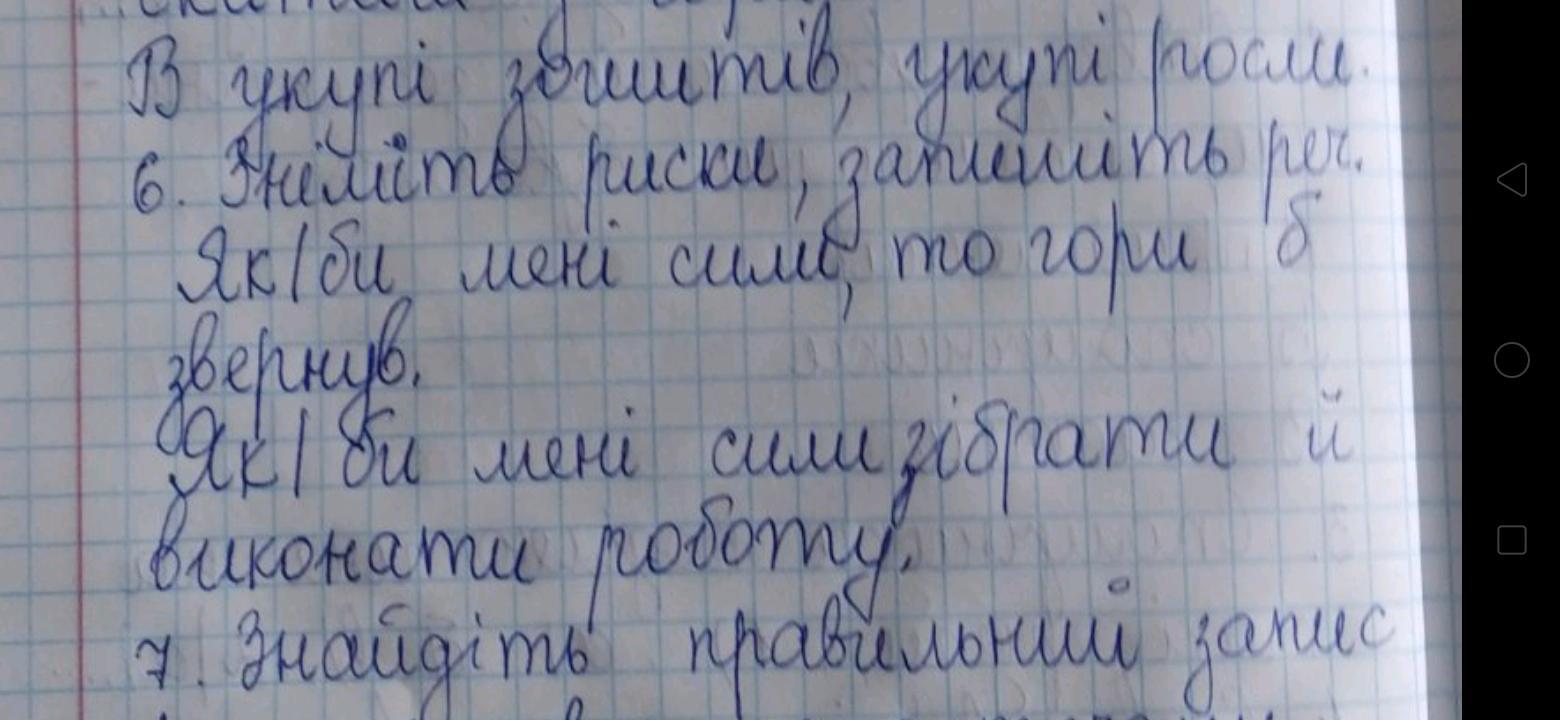 В укупі зошитів, укупі росли.
6. Зніміть риски, запишіть реч.
Як/би мені сили, то гори б
звернув.
Як/би мені сили зібрати й
виконати роботу.
7. Знайдіть правильний запис